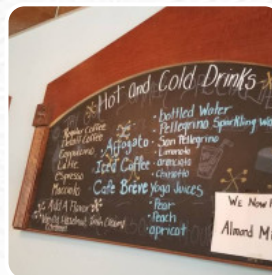 Hot and Cold Drinks
Regular Coffee
Decaff Coffee
Cappuccino
Latte
Espresso
Macciato
Add A Flavor
Vanilla Hazelnut Irish Cream
Caramel
Affogato
Iced Coffee
Cafe Breve
bottled Water
Pellegrino Sparkling Wa
San Pellegrino
Limonata
aranciata
Chinotto
Yoga Juices
Pear
Peach
apricot
WE NOW H
Almond Mi